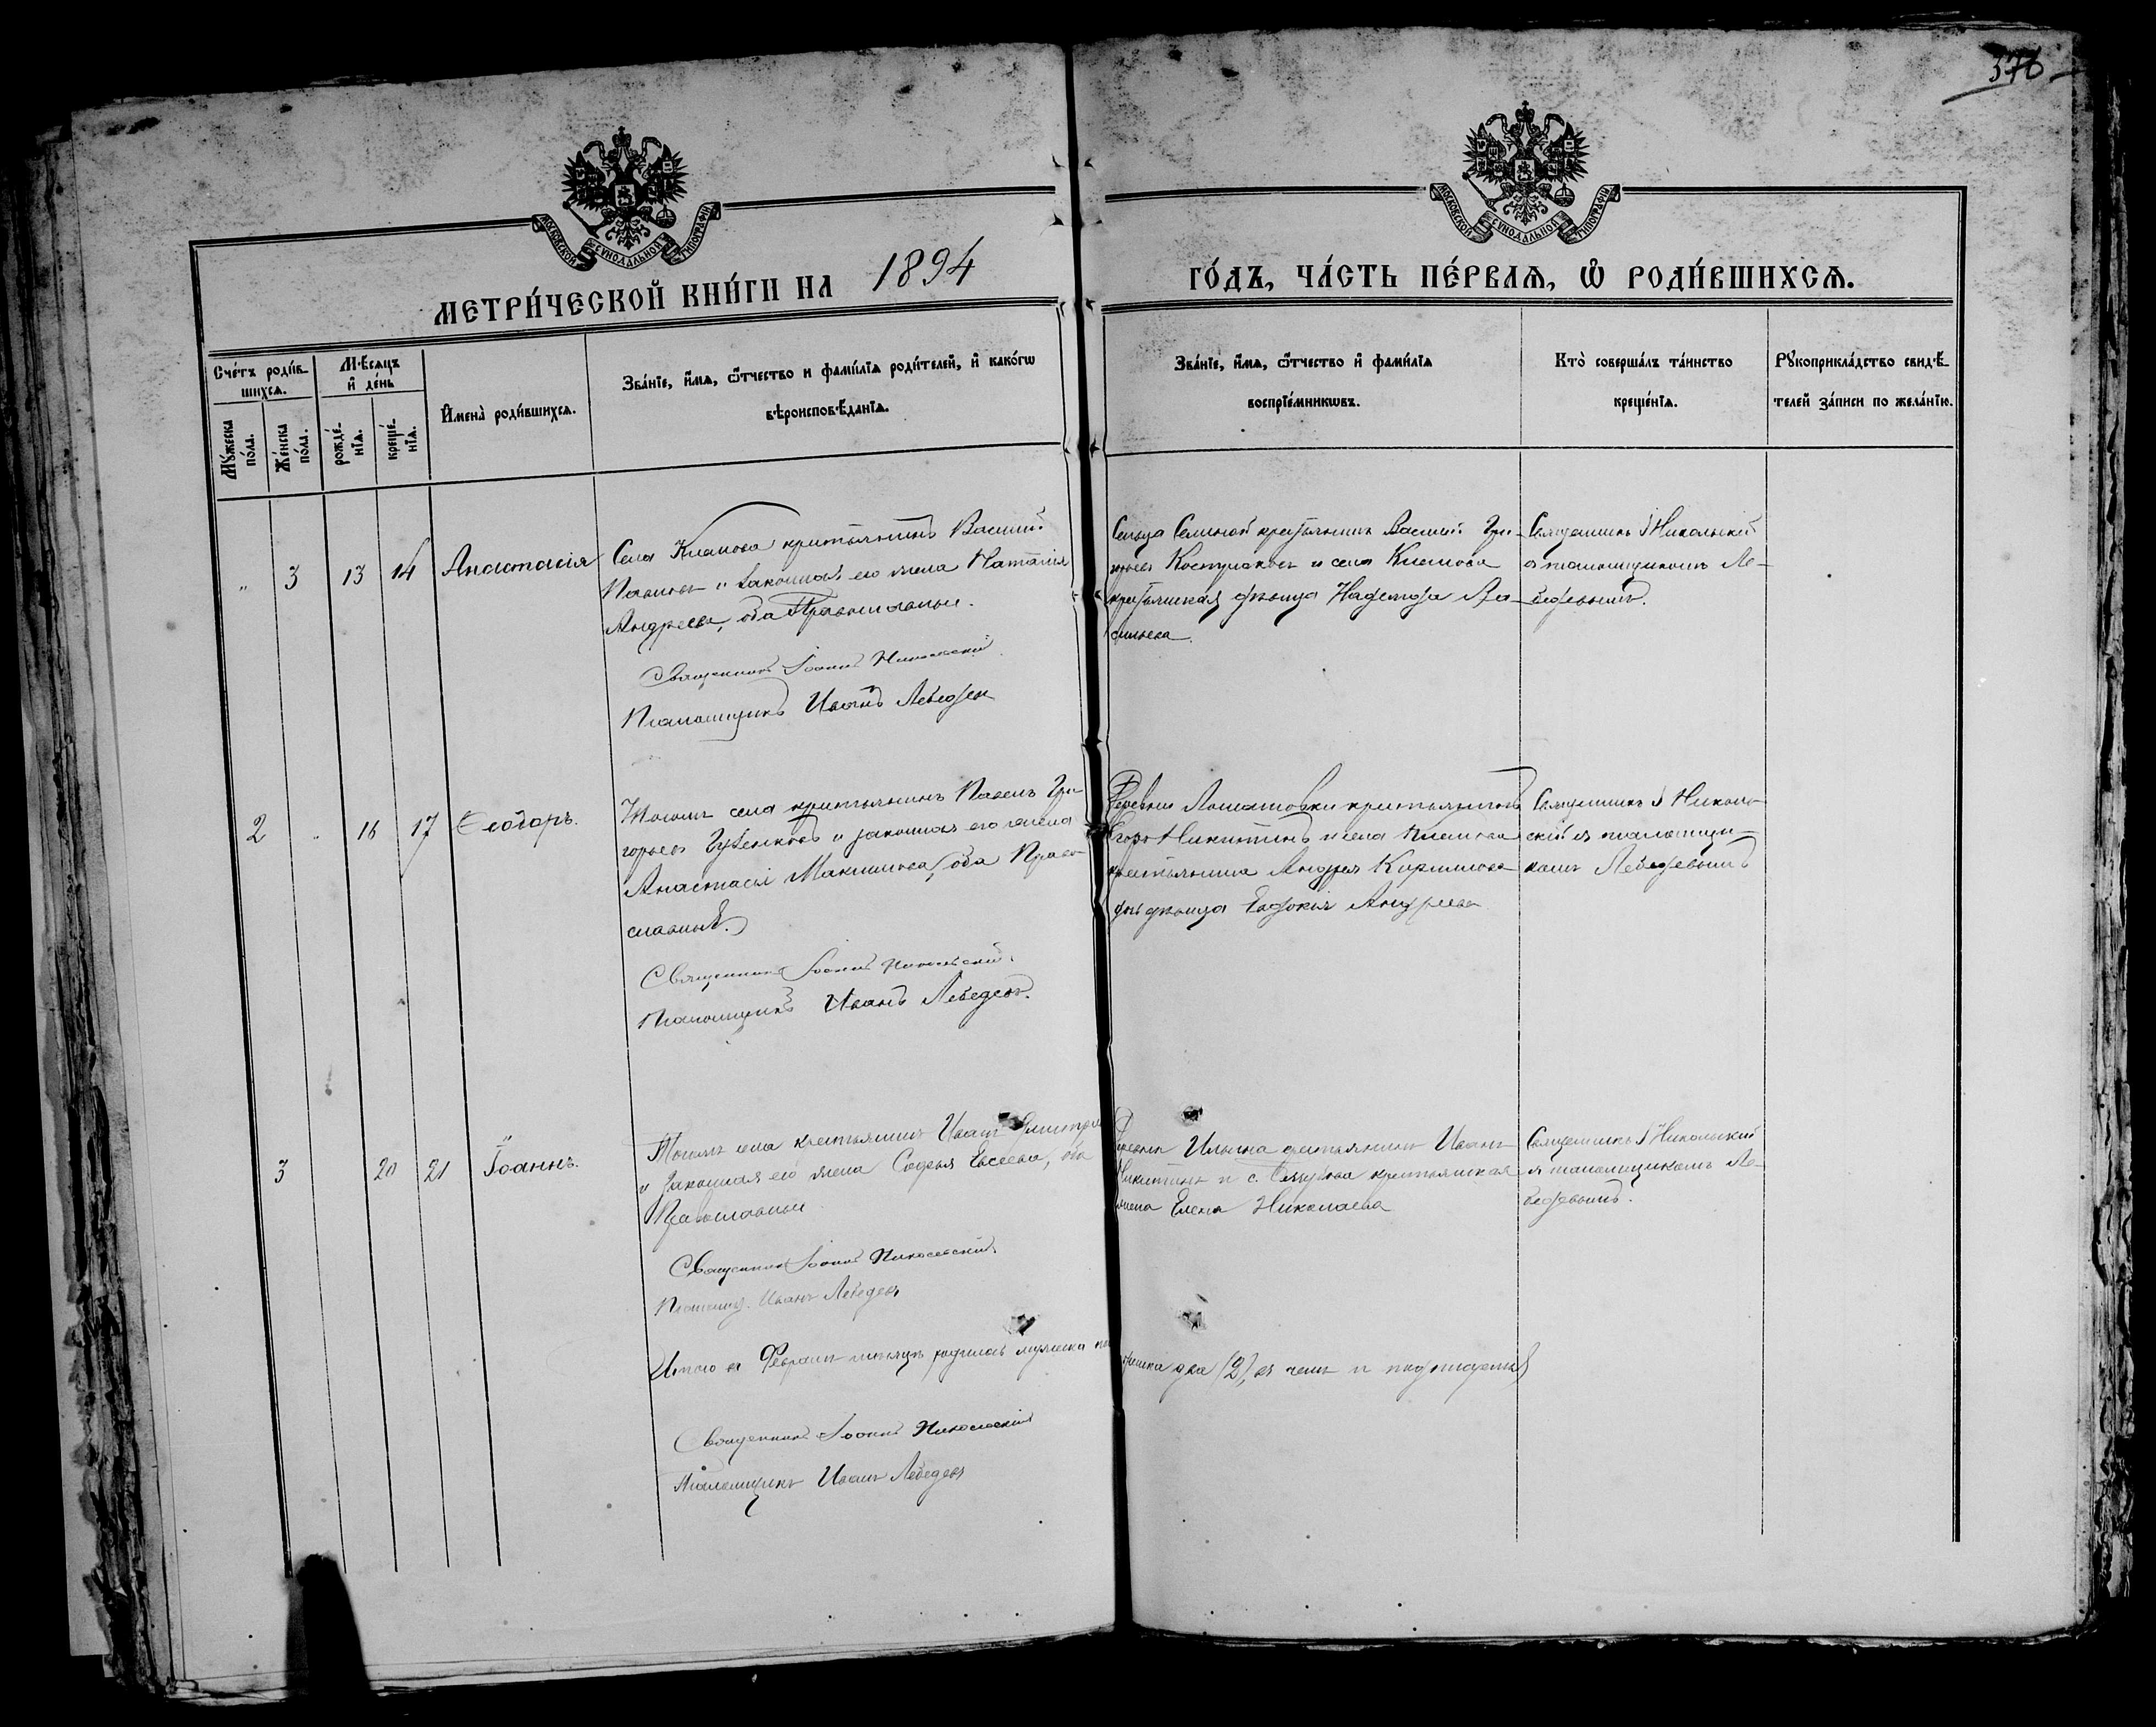 376
МОСКОВСКОЙ СУНОДАЛЬНОЙ ТИПОГРАФІИ
МОСКОВСКОЙ СУНОДАЛЬНОЙ ТИПОГРАФІИ
МЕТРИ́ЧЕСКОЙ КНИ́ГИ НА 1894
ГО́ДЪ, ЧА́СТЬ ПЕ́РВАѦ, Ѡ҆ РОДИ́ВШИХСѦ.
Сче́тъ роди́в-
шихсѧ.
Мѣсѧцъ
и҆ де́нь
Мꙋ́жеска
по́ла.
Же́нска
по́ла.
рожде́-
нїѧ.
креще́-
нїѧ.
И҆мена̀ роди́вшихсѧ.
Зва́нїе, и҆́мѧ, ѻ҆́тчество и фами́лїѧ роди́телей, и҆ како́гѡ
вѣроисповѣ́данїѧ.
Зва́нїе, и҆́мѧ, ѻ҆́тчество и҆ фами́лїѧ
воспрїе́мникѡвъ.
Кто̀ соверша́лъ та́инство
креще́нїѧ.
Рꙋкоприкла́дство свидѣ́-
телей за́писи по жела́нїю.
" 3 13 14 Анастасія
Села Климова крестьянинъ Василий
Павловъ и законная его жена Наталія
Андреева, оба Православные.
Священникъ Іоаннъ Никольский
Псаломщикъ Иванъ Лебедев
Сельца крестьянинъ Василий Гри-
горьев и села Климова
крестьянская девица Надежда Ва-
сильева.
Священникъ І Никольский
с псаломщикомъ Ле-
бедевымъ.
2 " 16 17 Ѳеодоръ.
Тогожъ села крестьянинъ Павелъ Гри-
горьев и законная его жена
Анастасія Максимова, оба Право-
славные.
Священникъ Іоаннъ Никольский.
Псаломщикъ Иванъ Лебедевъ.
Деревни крестьянинъ
Егоръ Никитинъ и села Климова
крестьянина Андрея Кирилова
девица Евдокия Андреева
Священникъ І Николь-
ский с псаломщи-
комъ Лебедевымъ
3 " 20 21 Іоаннъ.
Тогожъ села крестьянинъ Иванъ Дмитрие
и законная его жена Софья Евсеева, оба
Православные
Священникъ Іоаннъ Никольский.
Псаломщ. Иванъ Лебедевъ
Деревни Ильина крестьянинъ Иванъ
Никитинъ и с. крестьянская
жена Елена Николаева
Священникъ І Никольский
с псаломщикомъ Ле-
бедевымъ.
Итого въ Феврале месяце родилось мужеска по
женска два (2), въ чемъ и подписуемся
Священникъ Іоаннъ Никольский
Псаломщикъ Иванъ Лебедевъ